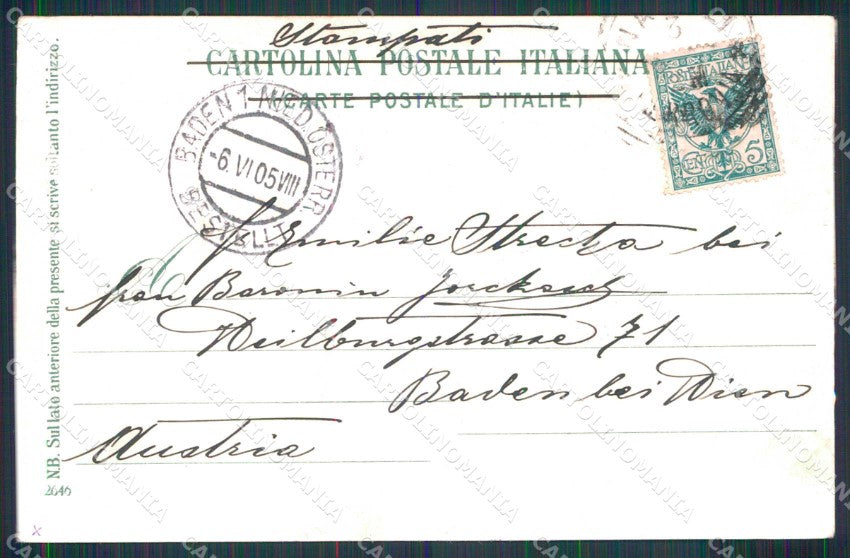 Stampati
CARTOLINA POSTALE ITALIANA
(CARTE POSTALE D'ITALIE)
N.B. Sul lato anteriore della presente si scrive soltanto l'indirizzo.
BADEN 1 NIED. ÖSTERR.
-6.VI 05 VIII
BESTELLT
POSTE ITALIANE
CENT. 5
Emilie Strecka bei
frau Baronin
71
Baden bei Wien
Austria
2646
x
CARTOLINOMANIA